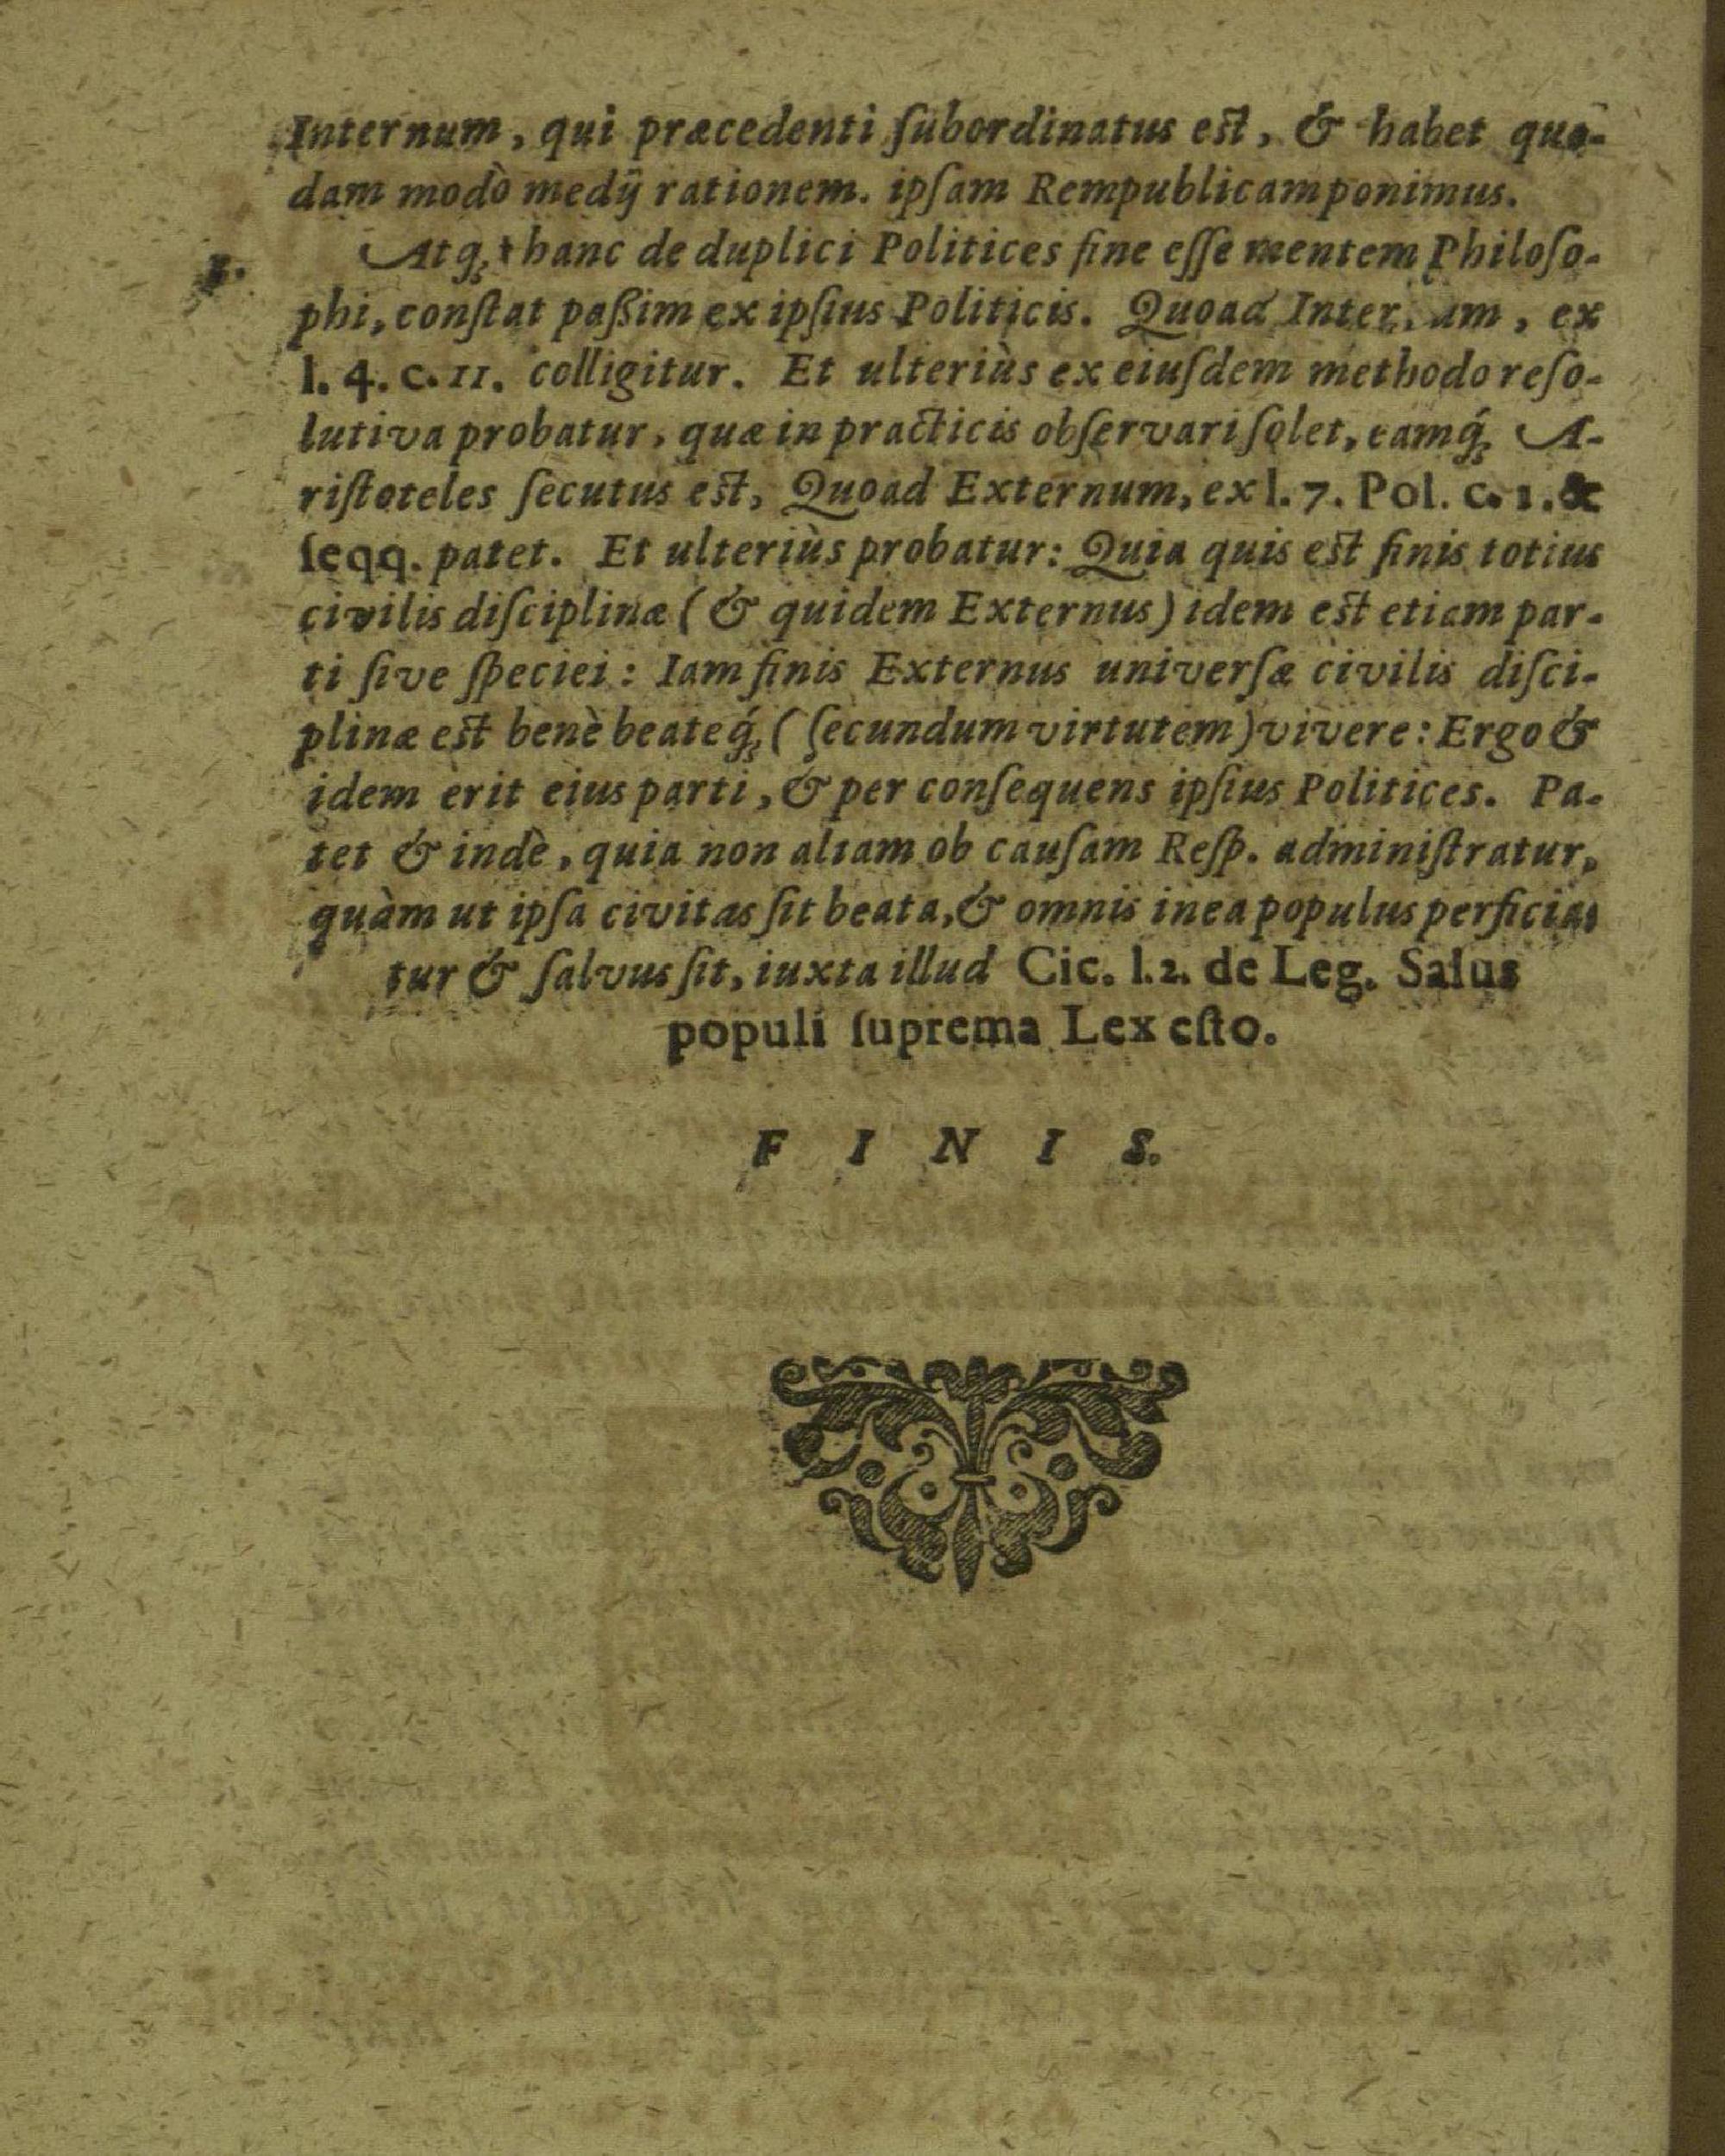 Internum, qui præcedenti ſubordinatus eſt, & habet quo-
dam modò medij rationem. ipſam Rempublicam ponimus.
1.
Atq́; † hanc de duplici Politices fine eſſe mentem Philoſo-
phi, conſtat paßim ex ipſius Politicis. Quoad , ex
l. 4. c. 11. colligitur. Et ulteriùs ex eiuſdem methodo reſo-
lutiva probatur, quæ in practicis obſervari ſolet, eamq́; A-
riſtoteles ſecutus eſt, Quoad Externum, ex l. 7. Pol. c. 1. &
ſeqq. patet. Et ulteriùs probatur: Quia quis eſt finis totius
civilis diſciplinæ (& quidem Externus) idem eſt etiam par-
ti ſive ſpeciei: Iam finis Externus univerſæ civilis diſci-
plinæ eſt benè beateq́; (ſecundum virtutem) vivere: Ergo &
idem erit eius parti, & per conſequens ipſius Politices. Pa-
tet & indè, quia non aliam ob cauſam Reſp. adminiſtratur,
quàm ut ipſa civitas ſit beata, & omnis in ea populus perficia-
tur & ſalvus ſit, iuxta illud Cic. l. 2. de Leg. Salus
populi ſuprema Lex eſto.
F I N I S.